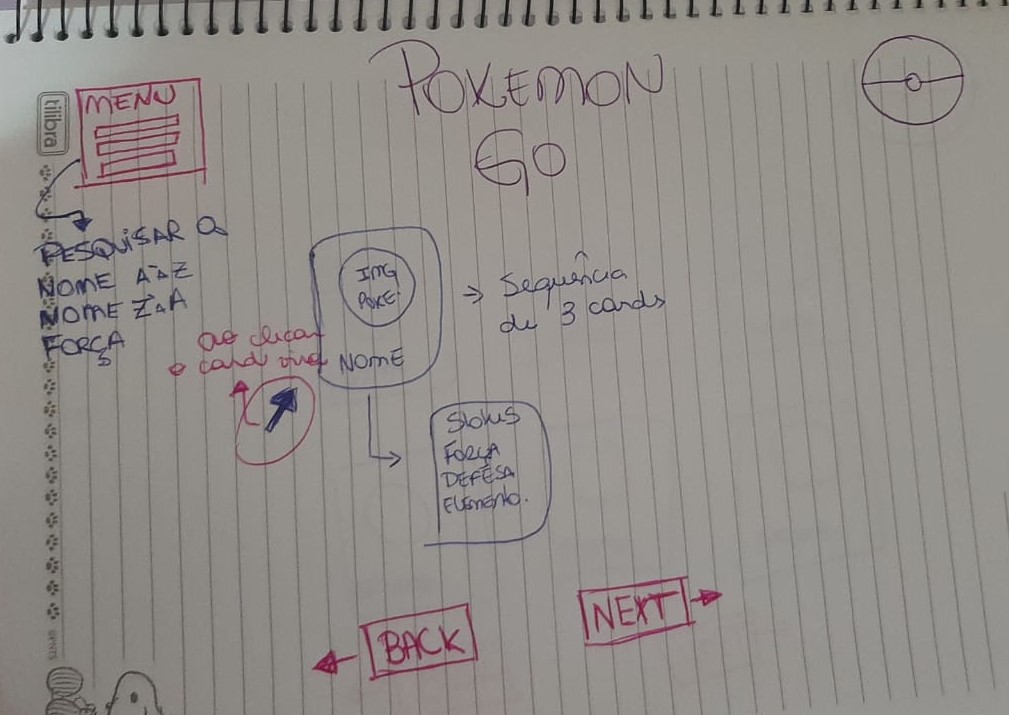 POKEMON
GO
MENU
tilibra
PESQUISAR
NOME A Z
NOME Z A
FORÇA
IMG
POKE
NOME
→ Sequência
de 3 cards
ao clicar
o card vira
Status
FORÇA
DEFESA
Elemento.
← BACK
NEXT →